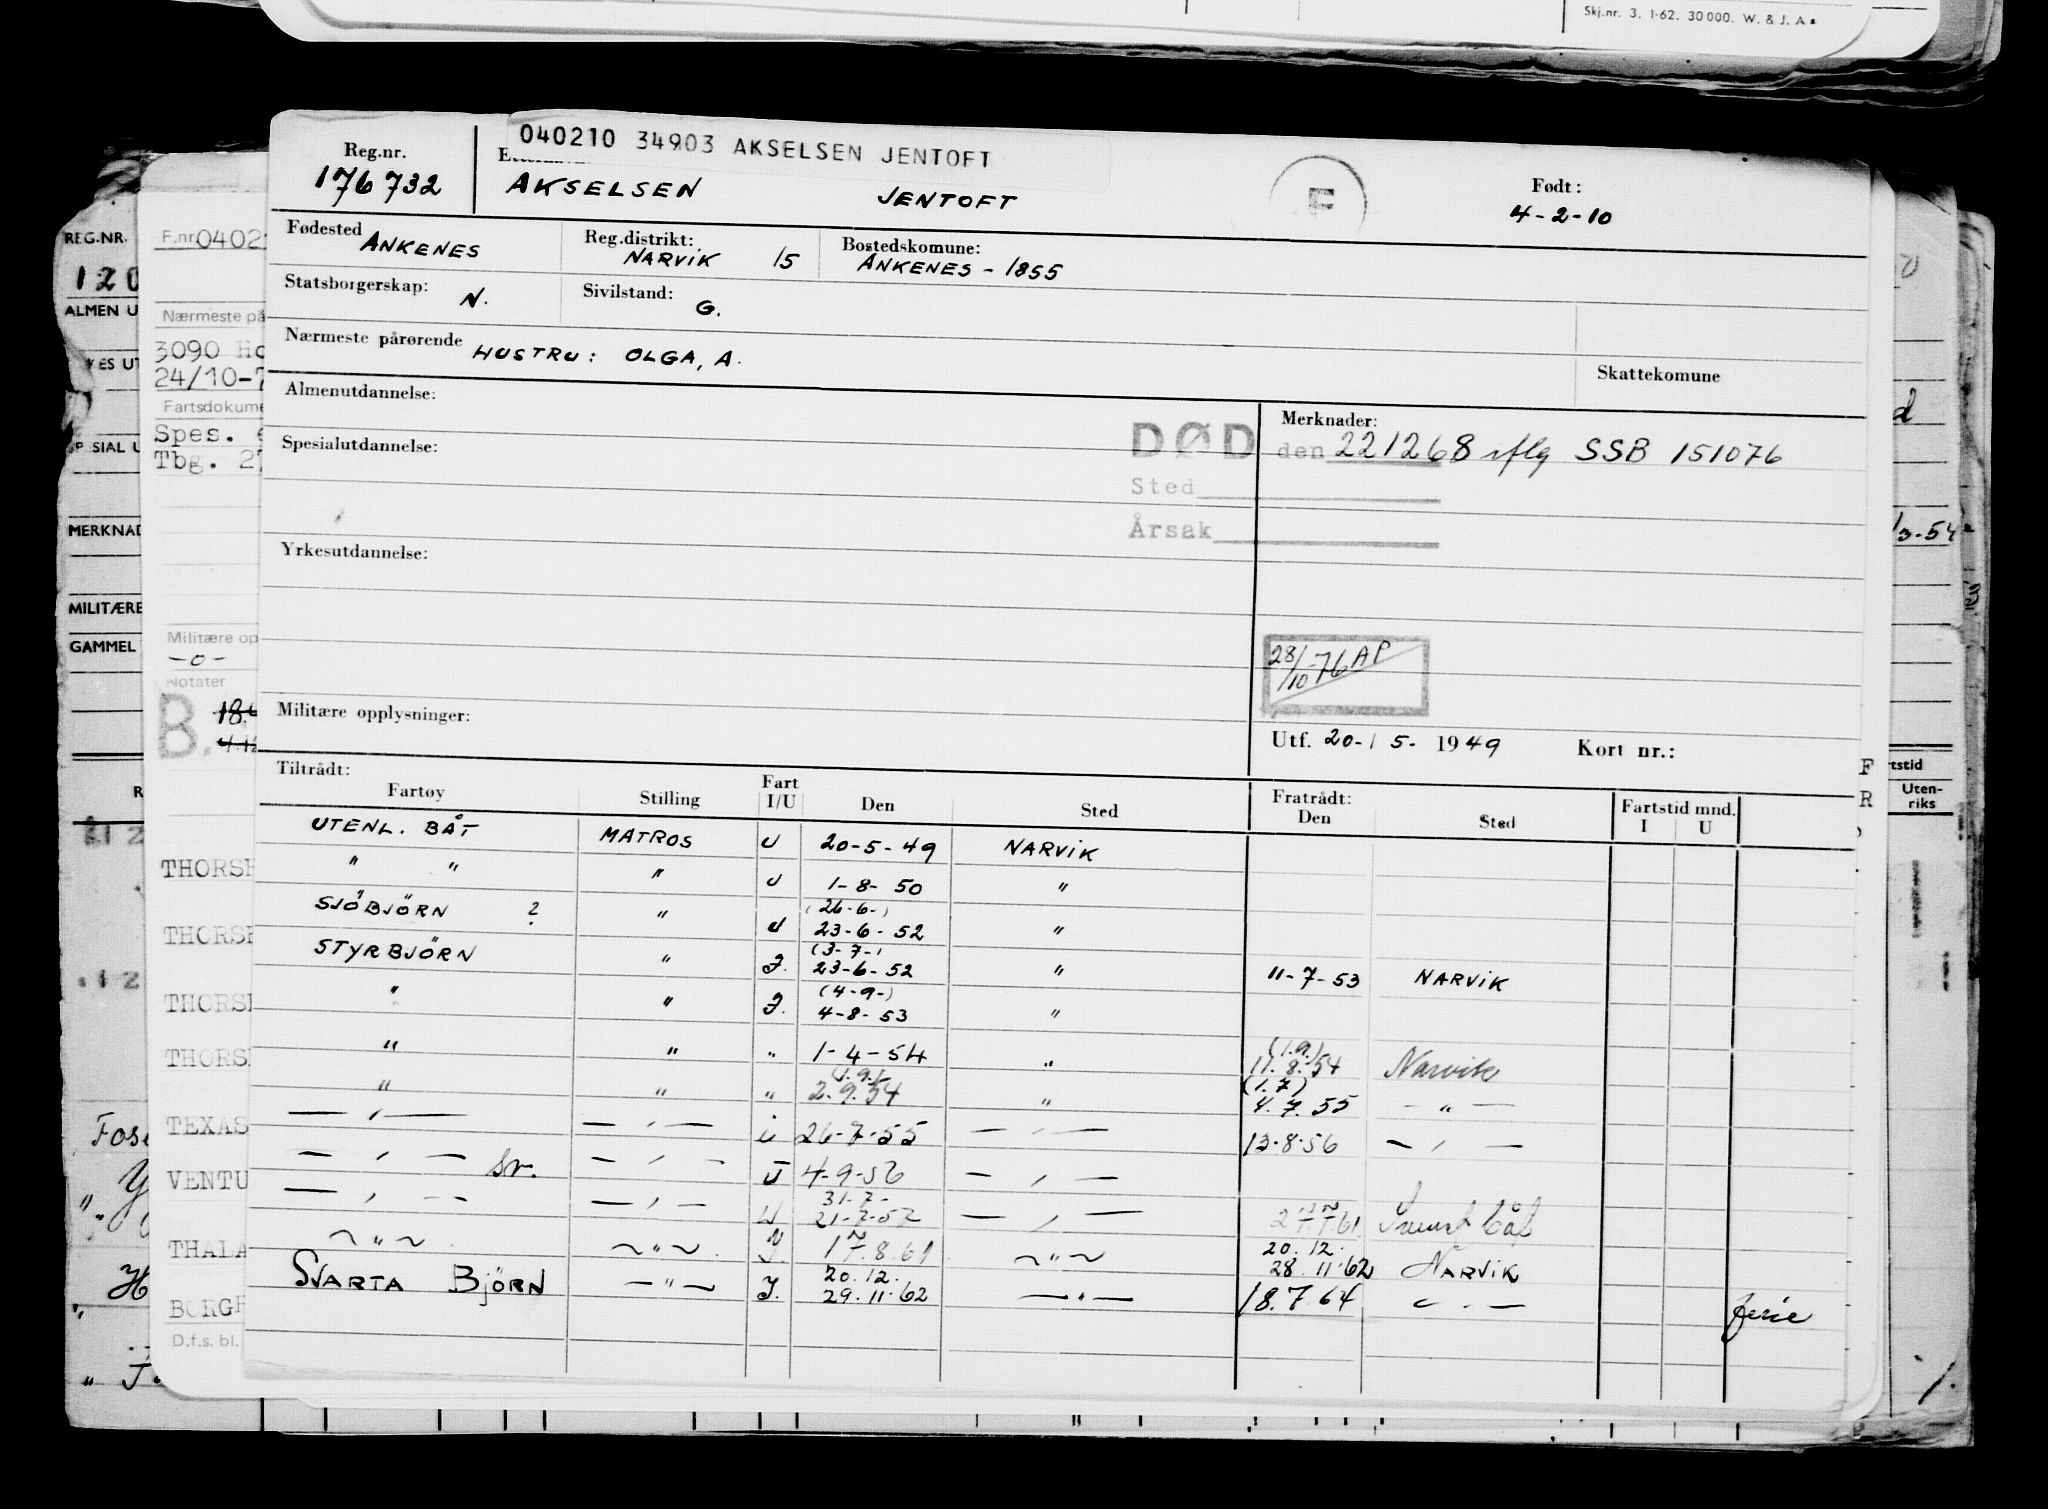 Skj.nr. 3. 1-62. 30000. W. & J. A s
040210 34903 AKSELSEN JENTOFT
Reg.nr. 176732 AKSELSEN JENTOFT F Født: 4-2-10
Fødested ANKENES Reg.distrikt: NARVIK 15 Bostedskomune: ANKENES - 1855
Statsborgerskap: N. Sivilstand: G.
Nærmeste pårørende HUSTRU: OLGA, A. Skattekomune
Almenutdannelse: Merknader:
DØD den 221268 iflg SSB 151076
Spesialutdannelse:
Sted
Årsak
Yrkesutdannelse:
28/10-76 AP
Militære opplysninger:
Utf. 20-15- 1949 Kort nr.:
Tiltrådt: Fratrådt:
Fartøy Stilling Fart I/U Den Sted Den Sted Fartstid mnd. I U
UTENL. BÅT MATROS U 20-5-49 NARVIK
" " " U 1-8-50 "
SJÖBJÖRN ? " U (26-6-) 23-6-52 "
STYRBJÖRN " I. (3-7-) 23-6-52 " 11-7-53 NARVIK
" " I. (4-9-) 4-8-53 "
" " " 1-4-54 " (1.9.) 11.8.54 Narvik
" " " (1.9.) 2.9.54 " (1.7) 4.7.55 — " —
— " — — " — i 26-7-55 — " — 13-8-56 — " —
— " — sv. — " — U 4-9-56 — " —
— " — — " — U 31-7- 21-7-57 — " — 27.7.61 Svensk båt
— " — — " — I. 17.8.61 — " — 20.12. 28.11.62 NARVIK
SVARTA BJÖRN — " — I. 20.12. 29.11.62 — " — 18.7.64 — " — ferie
REG.NR.
120
ALMEN U
ES UT
SIAL U
MERKNAD
MILITÆRE
GAMMEL
F.nr 0402
Nærmeste på
3090 Ho
24/10-7
Fartsdokume
Spes. e
Tbg. 27
Militære op
-o-
Notater
B.
THORSH
THORSH
THORSH
THORSH
TEXAS
VENTU
THALA
BORGH
D.f.s. bl.
Fos
/3-54
F
R
tstid
Uten-
riks